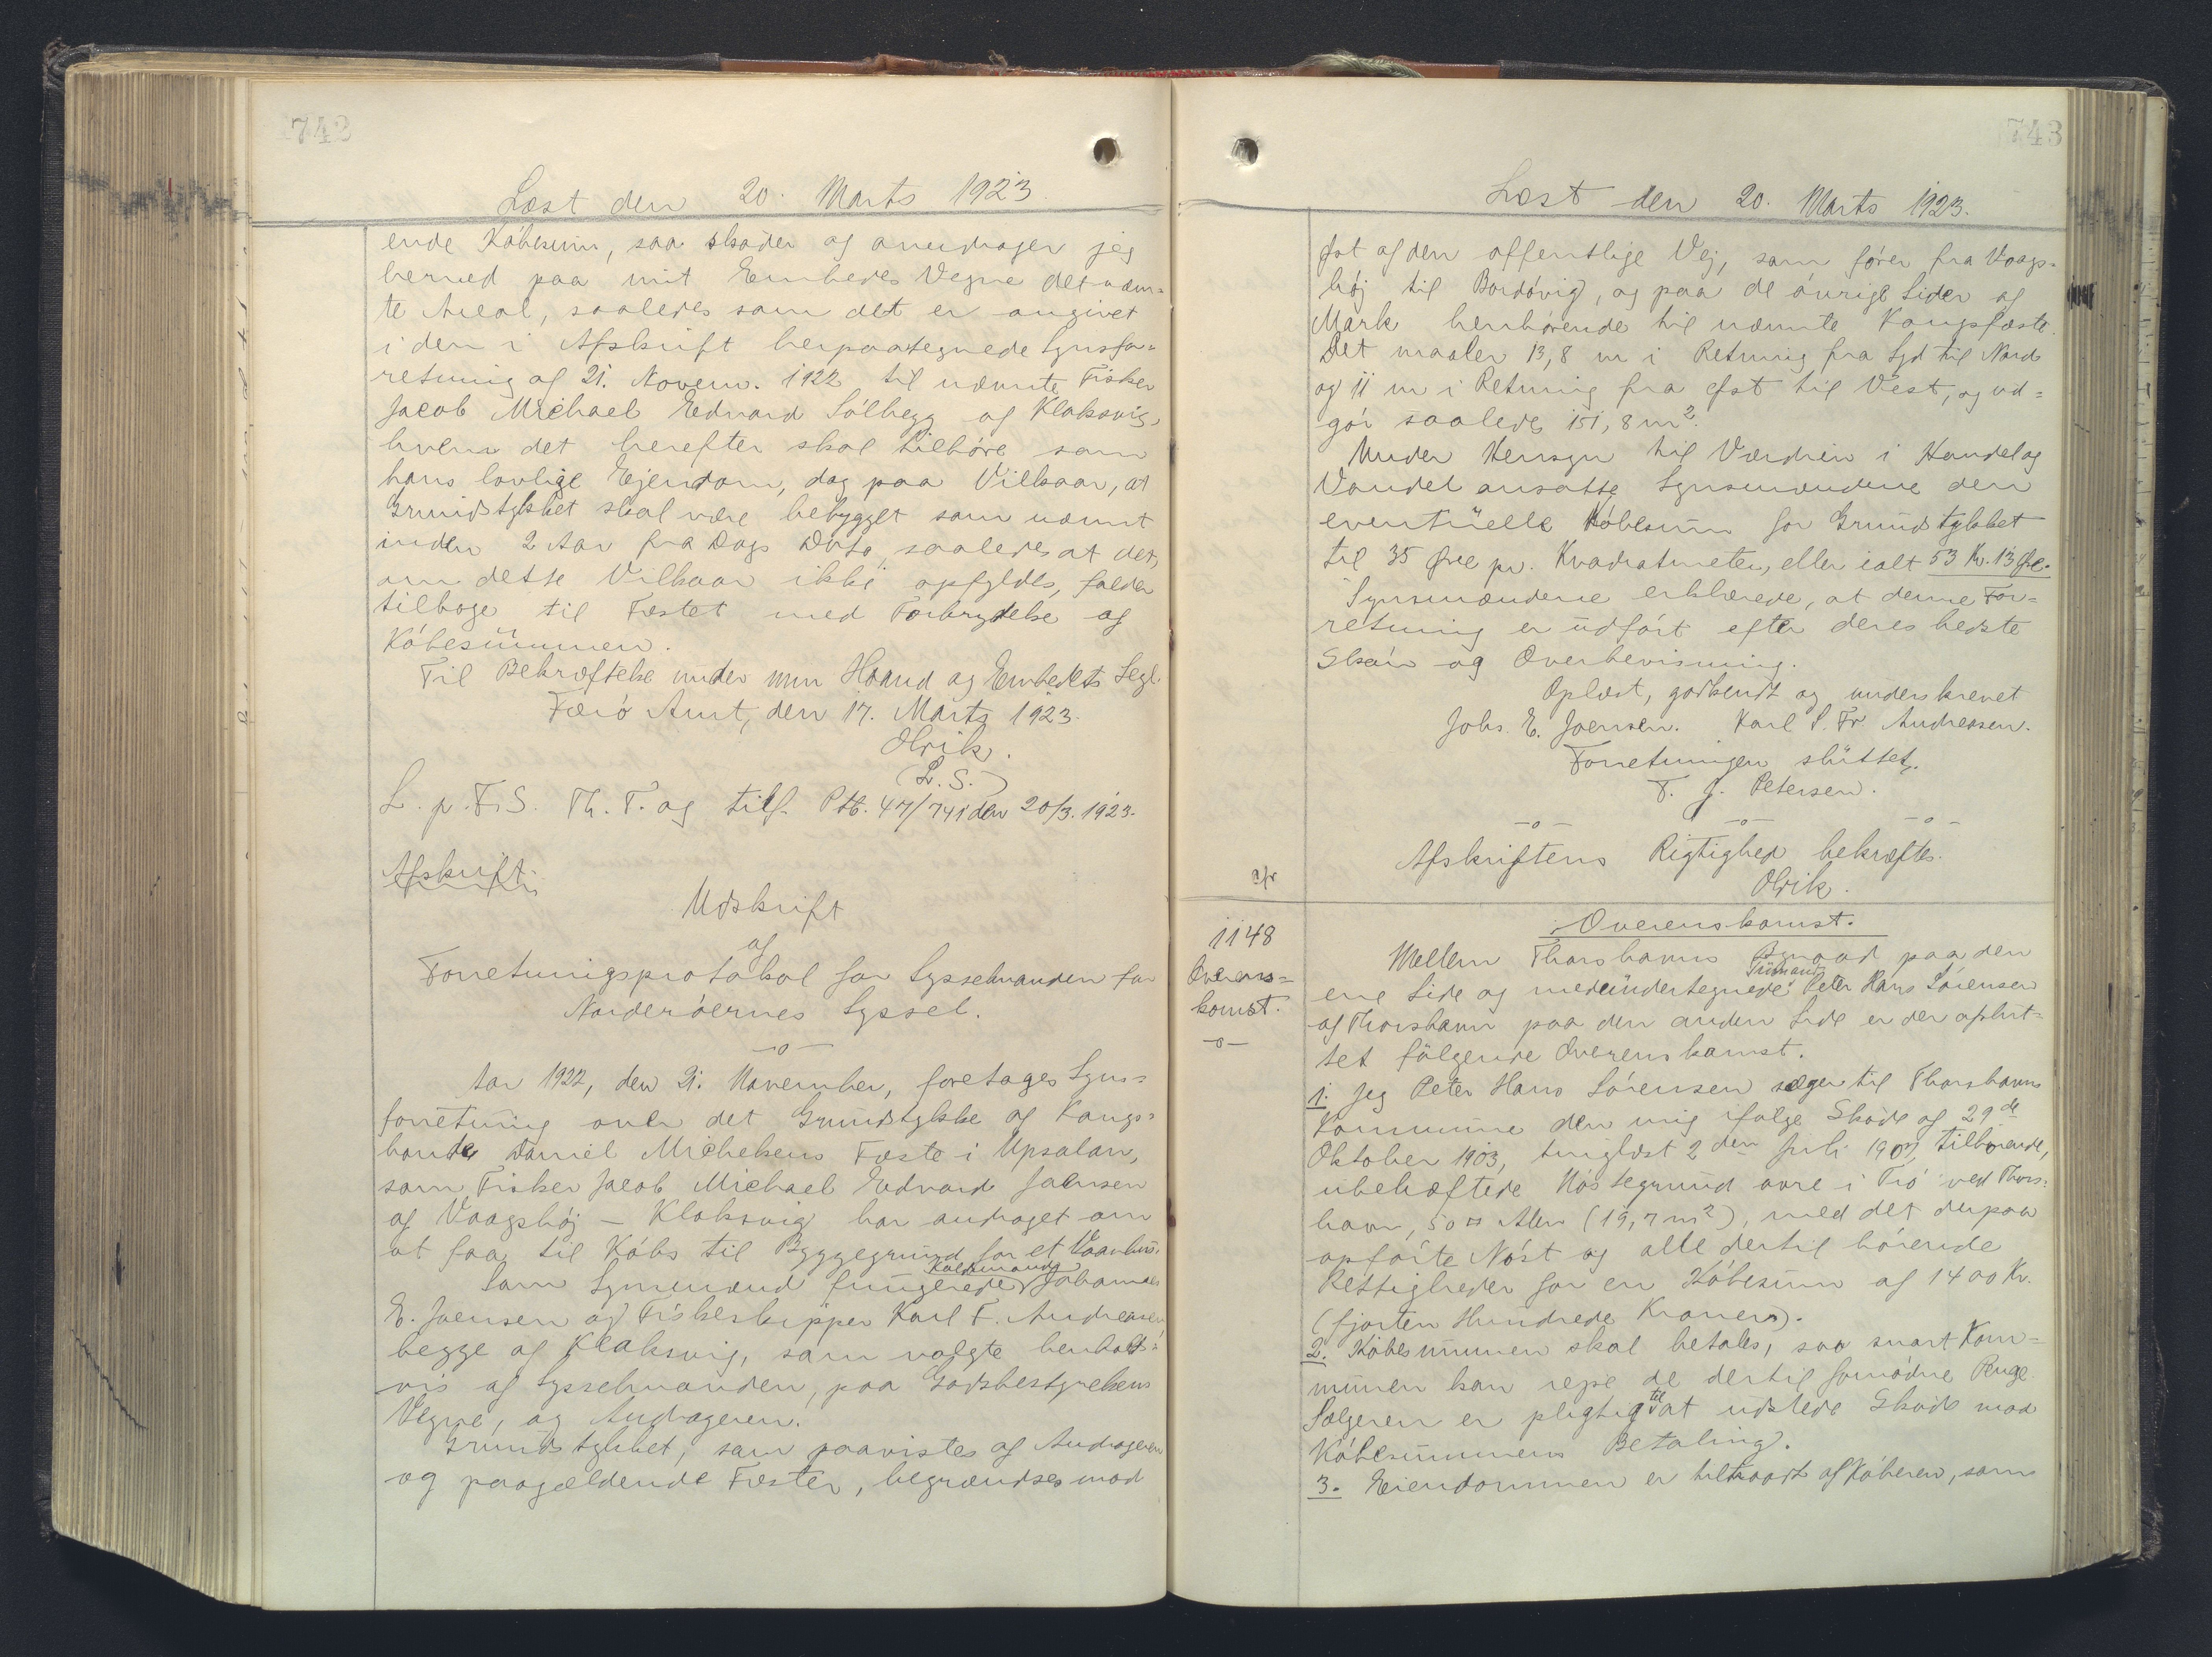 742
Læst den 20. Marts 1923.
ende Købesum, saa skøder og overdrager jeg
herved paa mit Embedes Vegne det nævn-
te Areal, saaledes som det er angivet
i den i Afskrift herpaategnede Synsfor-
retning af 21. Novem. 1922 til nævnte Fisker
Jacob Michael Edvard Sólhegg af Klaksvig,
hvem det herefter skal tilhøre som
hans lovlige Ejendom, dog paa Vilkaar, at
Grundstykket skal være bebygget som nævnt
inden 2 Aar fra Dags Dato, saaledes at det,
om dette Vilkaar ikke opfyldes, falder
tilbage til Fæstet med Forbrydelse af
Købesummen.
Til Bekræftelse under min Haand og Embedets Segl.
Færø Amt, den 17. Marts 1923.
Olrik.
(L.S.)
L. p. F. S. Th. T. og tilf. Ptb. 47/741 den 20/3. 1923.
Afskrift.
Udskrift
af
Forretningsprotokol for Sysselmanden for
Norderøernes Syssel.
—o—
Aar 1922, den 21. November, foretages Syns-
forretning over det Grundstykke af Kongs-
bonde Daniel Michelsens Fæste i Upsalan,
som Fisker Jacob Michael Edvard Joensen
af Vaagshøj – Klaksvig har andraget om
at faa til Købs til Byggegrund for et Vaanhus.
Som Synsmænd fungerede Købmand Johannes
E. Joensen og Fiskeskipper Karl F. Andreasen
begge af Klaksvig, som valgte henholds-
vis af Sysselmanden, paa Godsbestyrelsens
Vegne, og Andrageren.
Grundstykket, som paavistes af Andrageren
og paagældende Fæster, begrændses mod
743
Læst den 20. Marts 1923.
Øst af den offentlige Vej, som fører fra Vaags-
høj til Bordøvig, og paa de øvrige Sider af
Mark henhørende til nævnte Kongsfæste.
Det maaler 13,8 m i Retning fra Syd til Nord
og 11 m i Retning fra Øst til Vest, og ud-
gør saaledes 151,8 m².
Under Hensyn til Værdien i Handel og
Vandel ansatte Synsmændene den
eventuelle Købesum for Grundstykket
til 35 Øre pr. Kvadratmeter, eller ialt 53 Kr. 13 Øre.
Synsmændene erklærede, at denne For-
retning er udført efter deres bedste
Skøn og Overbevisning.
Oplæst, godkendt og underskrevet
Johs. E. Joensen. Karl S. Fr. Andreasen.
Forretningen sluttet.
F. J. Petersen.
—o— —o— —o—
Afskriftens Rigtighed bekræftes.
Olrik.
cfr
1148
Overens-
komst.
—o—
Overenskomst.
Mellem Thorshavns Byraad paa den
ene Side og medundertegnede Tømand Peter Hans Sørensen
af Thorshavn paa den anden Side er der afslut-
tet følgende Overenskomst.
1. Jeg Peter Hans Sørensen sælger til Thorshavns
Kommune den mig ifølge Skøde af 29de
Oktober 1903, tinglæst 2den Juli 1907, tilhørende,
ubehæftede Nøstegrund øvre i Trø ved Thors-
havn, 50 □ Alen (19,7 m²), med det derpaa
opførte Nøst og alle dertil hørende
Rettigheder for en Købesum af 1400 Kr.
(fjorten Hundrede Kroner).
2. Købesummen skal betales, saa snart Kom-
munen kan rejse de dertil fornødne Penge.
Sælgeren er pligtig til at udstede Skøde mod
Købesummens Betaling.
3. Eiendommen er tiltraadt af Køberen, som